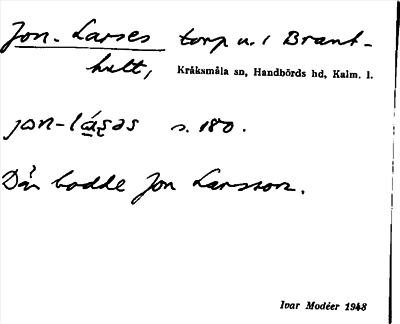 Jon-Larses torp u. i Brant-
hult, Kråksmåla sn, Handbörds hd, Kalm. l.
jɒn-lá̱ʂəs s. 180.
Där bodde Jon Larsson.
Ivar Modéer 1948